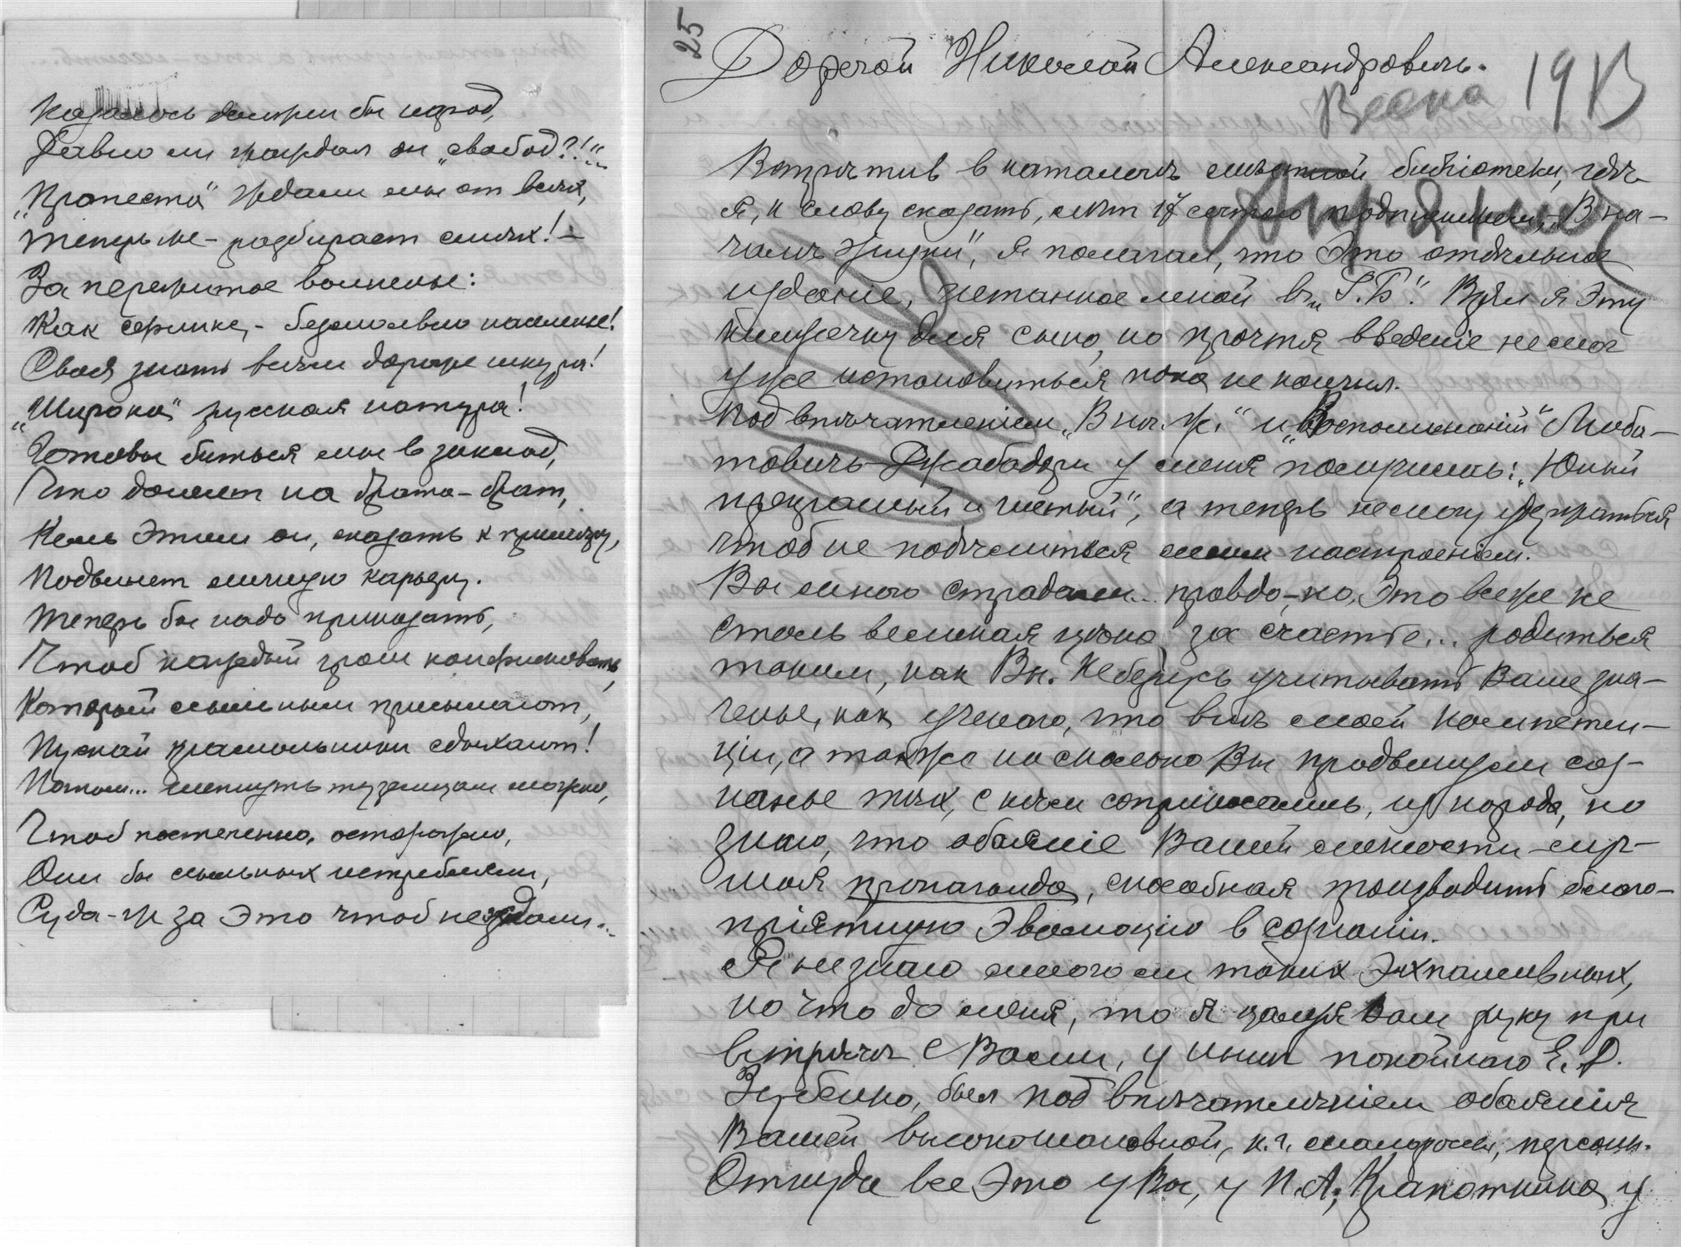 Казалось
бы народ,
Давно ли страдал он „свобод?!“..
„Протеста“ ждали мы от всех,
Теперь же – разбирает смех! –
За пережитое волненье:
Как сфинкс, – безмолвно население!
Своя знать всем дороже шкура!
„Широка“ русская натура!
Готовы биться мы в заклад,
Что донесет на брата – брат,
Коль этим он, сказать к примеру,
Подвинет личную карьеру.
Теперь бы надо приказать,
Чтоб каждый грош конфисковать,
Который ссыльным присылают,
Пускай крамольники сдыхают!
Потом... шепнуть туземцам можно,
Чтоб постепенно, осторожно,
Они бы ссыльных истребляли,
Суда-ж за это чтоб не ждали...
25
Дорогой Николай Александрович.
Весна 1913
Встрѣтив в каталогѣ мѣстной библіотеки, гдѣ
я, к слову сказать, лѣт 17 состою подписчиком, – „В на-
чалѣ жизни“, я полагал, что это отдѣльное
изданіе, читанное мной в „Г.Б“. Взял я эту
книжечку для сына, но прочтя введеніе не мог
уже остановиться пока не кончил.
Под впечатлѣніем „В нач. ж.“ и „Воспоминаній“ Люба-
тович-Джабадари у меня
: „Юный
прекрасный и чистый“, а теперь не могу удержаться
чтоб не подѣлиться моим настроеніем.
Вы много страдали.. правда, – но, это все же не
столь великая цѣна за счастье... родиться
таким, как Вы. Не берусь учитывать Ваше зна-
ченье, как ученого, что внѣ моей компетен-
ціи, а также на сколько Вы продвинули соз-
нанье тѣх, с кѣм соприкасались, из народа, но
знаю, что обаяніе Вашей личности – мир-
ная пропаганда, способная производить благо-
пріятную эволюцію в сознаніи.
Я не знаю много ли таких экспансивных,
но что до меня, то я пожав Вам руку при
встрѣчѣ с Вами, у ныне покойного Е. Д.
Зубенко, был под впечатлѣніем обаянія
Вашей высокошановной, к. г. малороссы, персоны.
Откуда все это у Вас, у П. А. Крапоткина, у